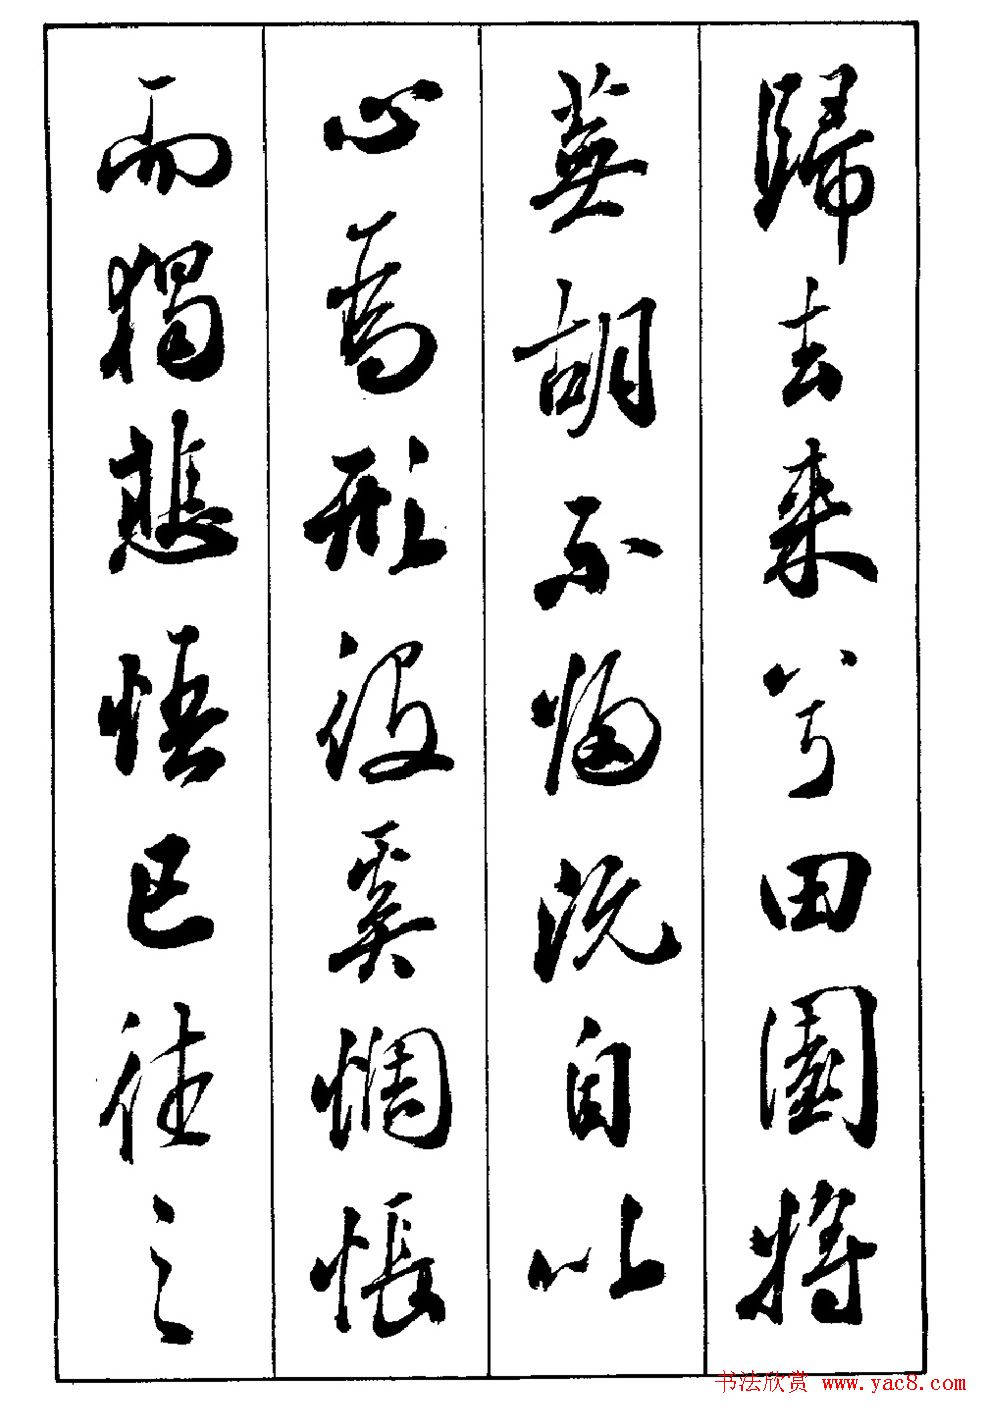 歸去来兮田園將
蕪胡不歸既自以
心為形役奚惆悵
而獨悲悟已往之
书法欣赏 www.yac8.com